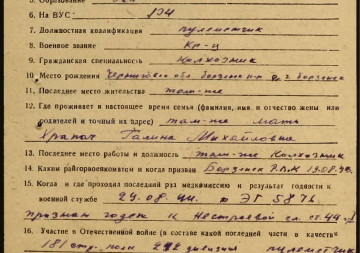 6. На ВУС 134
7. Должностная квалификация пулеметчик
8. Военное звание кр-ц
9. Гражданская специальность Колхозник
10. Место рождения Черниговск. обл. Борзенск р-н
11. Последнее место жительства там-же
12. Где проживает в настоящее время семья (фамилия, имя и отчество жены или
родителей и точный их адрес) там-же Мать
Храпач Галина Михайловна
13. Последнее место работы и должность там-же Колхозник
14. Каким райгорвоенкоматом и когда призван Борзенск. РВК 19.08.43г.
15. Когда и где проходил последний раз медкомиссию и результат годности к
военной службе 29.08.44г. ЭГ 5876.
признан годен к Нестроевой ст. 44-I
16. Участие в Отечественной войне (в составе какой последней части в качестве
181 стр. полк 292 дивизия пулеметчик